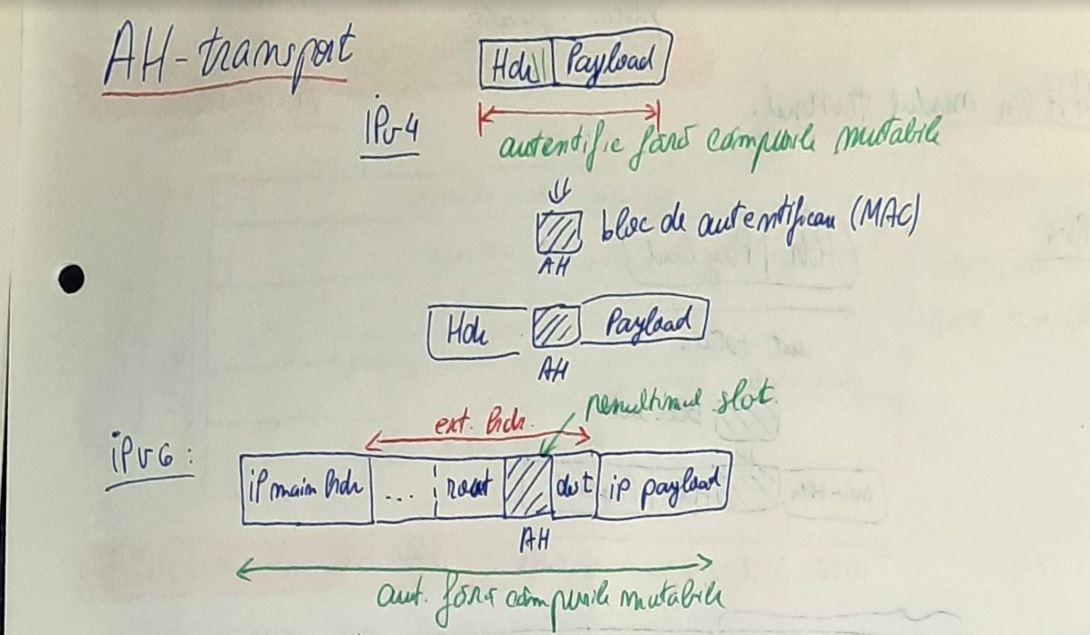 AH-transport
Hdr Payload
iPv4
autentific fără câmpurile mutabile
bloc de autentificare (MAC)
AH
Hdr Payload
AH
penultimul slot.
ext. hdr.
iPv6:
iP main hdr ... rout dst ip payload
AH
aut. fără câmpurile mutabile